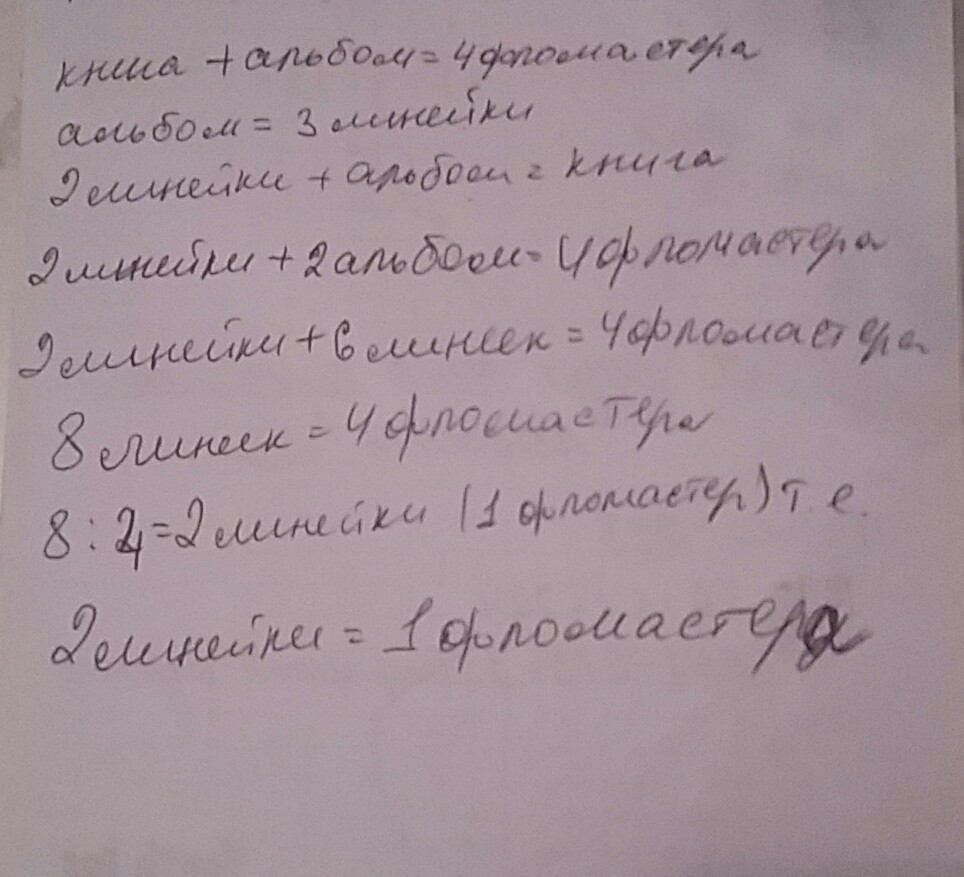 книга + альбом = 4 фломастера
альбом = 3 линейки
2 линейки + альбом = книга
2 линейки + 2 альбом = 4 фломастера
2 линейки + 6 линеек = 4 фломастера
8 линеек = 4 фломастера
8 : 4 = 2 линейки (1 фломастер) т. е.
2 линейки = 1 фломастер